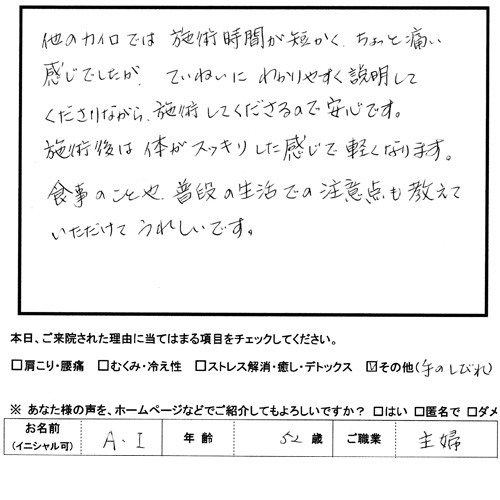 他のカイロでは 施術時間が短かく、ちょっと痛い
感じでしたが、ていねいに わかりやすく説明して
くださりながら、施術してくださるので安心です。
施術後は 体がスッキリした感じで軽くなります。
食事のことや、普段の生活での注意点も教えて
いただけて うれしいです。
本日、ご来院された理由に当てはまる項目をチェックしてください。
□肩こり・腰痛 □むくみ・冷え性 □ストレス解消・癒し・デトックス ☑その他(手のしびれ)
※ あなた様の声を、ホームページなどでご紹介してもよろしいですか？ □はい □匿名で □ダメ
お名前 (イニシャル可) A.I 年 齢 52 歳 ご職業 主婦